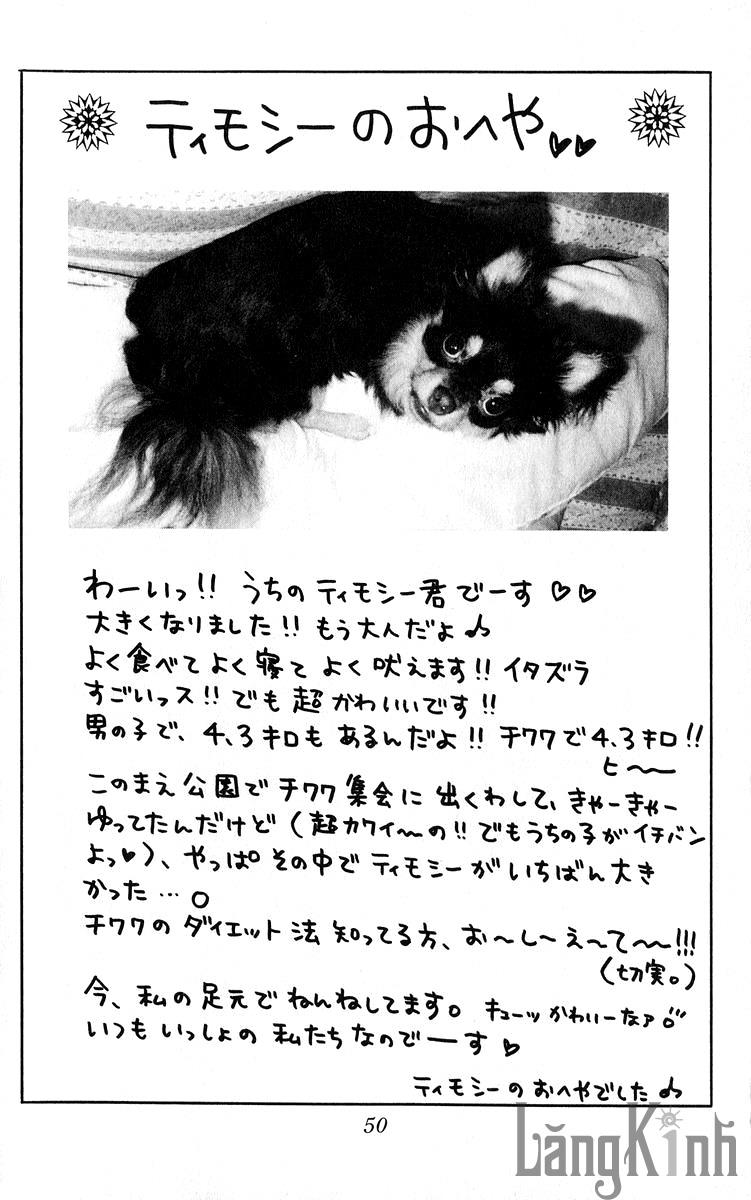 ティモシーのおへや♥♥
わーいっ!! うちの ティモシー君でーす ♡♡
大きくなりました!! もう大人だよ♪
よく食べて よく寝て よく吠えます!! イタズラ
すごいっス!! でも 超かわいいです!!
男の子で、4.3キロも あるんだよ!! チワワで4.3キロ!!
ヒ〜〜
このまえ公園で チワワ集会に 出くわして、きゃーきゃー
ゆってたんだけど (超カワイ〜の!! でもうちの子がイチバン
よっ♥)、やっぱ その中で ティモシーが いちばん大き
かった…。
チワワの ダイエット法 知ってる方、お〜し〜え〜て〜〜!!!
(切実。)
今、私の足元で ねんねしてます。 キューッ かわいーなァ。
いつも いっしょの 私たちなのでーーす ♡
ティモシーのおへやでした♪
50
LăngKính